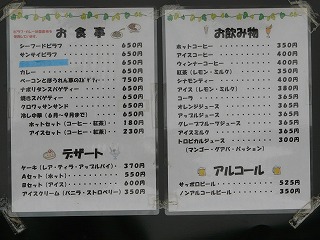 お食事
シーフードピラフ 650円
サンサイピラフ 650円
650円
カレー 650円
ベーコンとほうれん草の 750円
ナポリタンスパゲティー 650円
焼きスパゲティー 650円
クロワッサンサンド 650円
冷し中華（6月～9月まで） 650円
ホットセット（コーヒー・紅茶） 180円
アイスセット（コーヒー・紅茶） 230円
デザート
ケーキ（レア・ティラ・アップルパイ） 370円
Aセット（ホット） 550円
Bセット（アイス） 600円
アイスクリーム（バニラ・ストロベリー） 350円
お飲み物
ホットコーヒー 350円
アイスコーヒー 400円
ウィンナーコーヒー 400円
紅茶（レモン・ミルク） 350円
シナモンティー 400円
アイス（レモン・ミルク） 380円
コーラ 365円
オレンジジュース 365円
アップルジュース 365円
グレープフルーツジュース 365円
アイスミルク 365円
トロピカルジュース 300円
（マンゴー・グアバ・パッション）
アルコール
サッポロビール 525円
ノンアルコールビール 350円